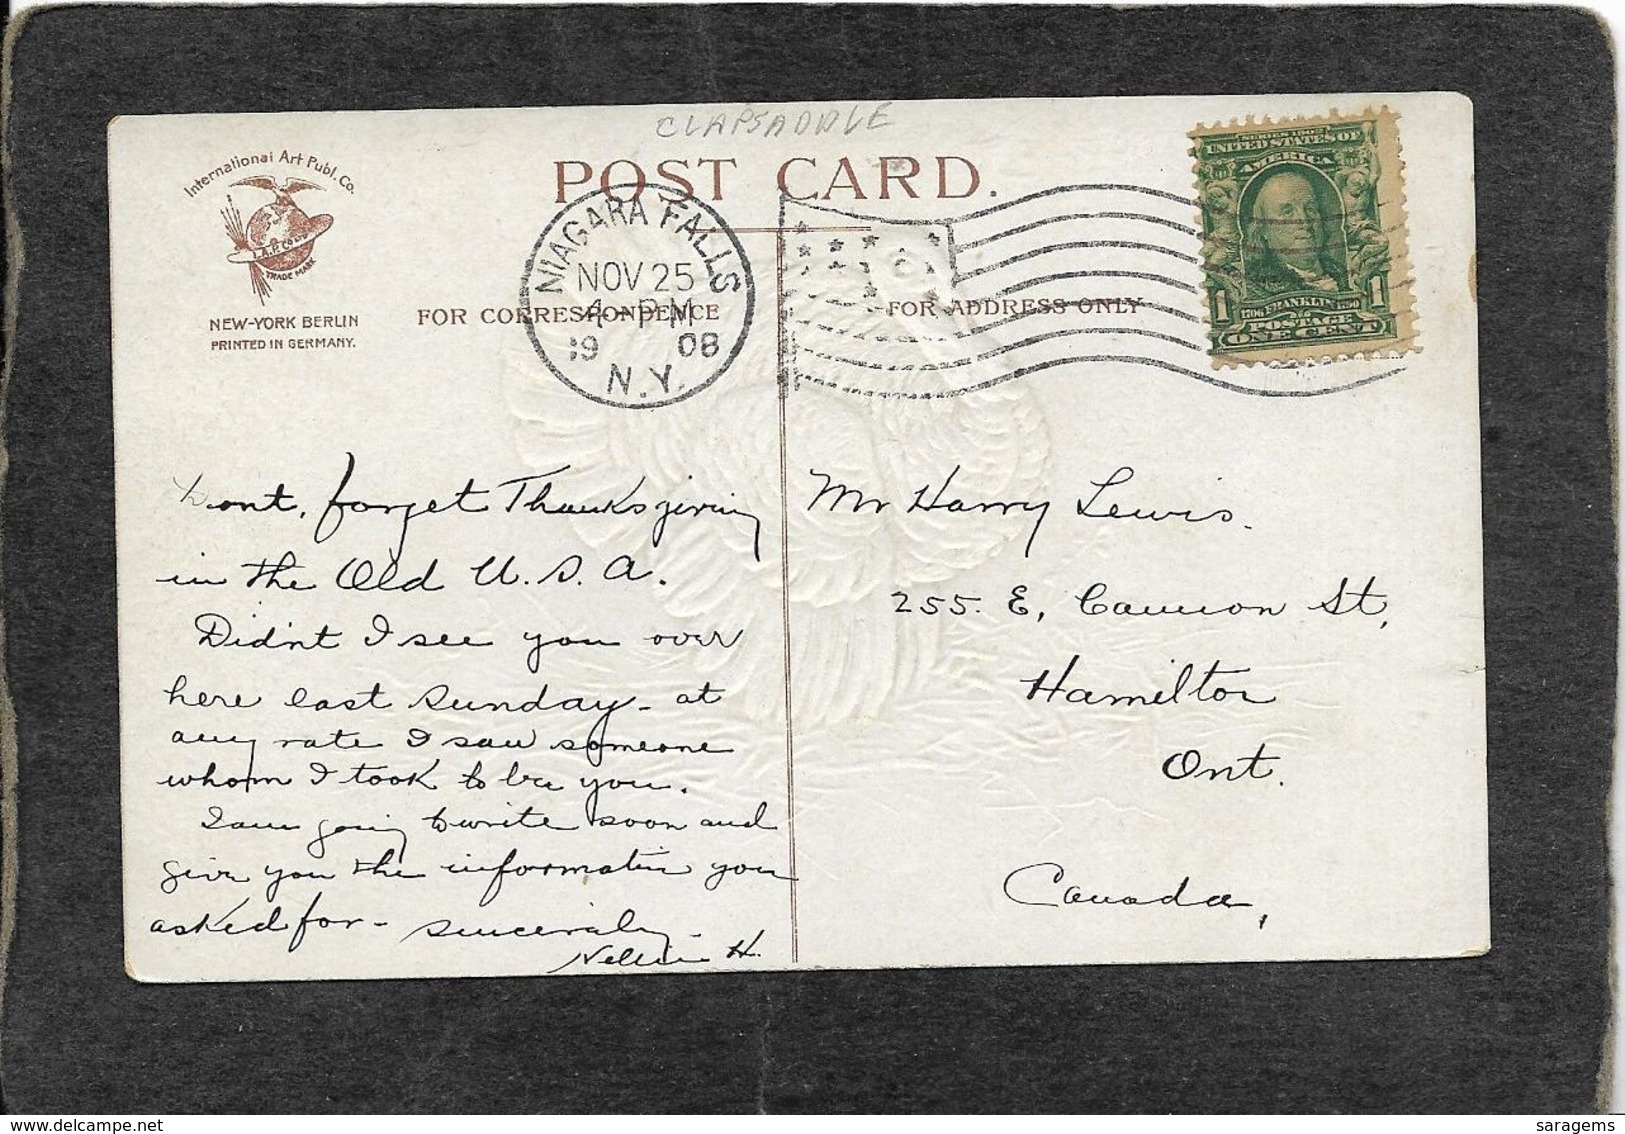 CLAPSADDLE
International Art Publ. Co.
I.A.P. Co.
TRADE MARK
NEW-YORK BERLIN
PRINTED IN GERMANY.
POST CARD.
FOR CORRESPONDENCE
FOR ADDRESS ONLY
NIAGARA FALLS
NOV 25
4 - PM
19 08
N.Y.
SERIES 1902
UNITED STATES OF
AMERICA
1 1706 FRANKLIN 1790 1
POSTAGE
ONE CENT
Dont, forget Thanksgiving
in the Old U.S.A.
Didn't I see you over
here last Sunday - at
any rate I saw someone
whom I took to be you.
I am going to write soon and
give you the information you
asked for - Sincerely -
Nellie H.
Mr Harry Lewis.
255. E, Cannon St,
Hamilton
Ont.
Canada,
delcampe.net
saragems